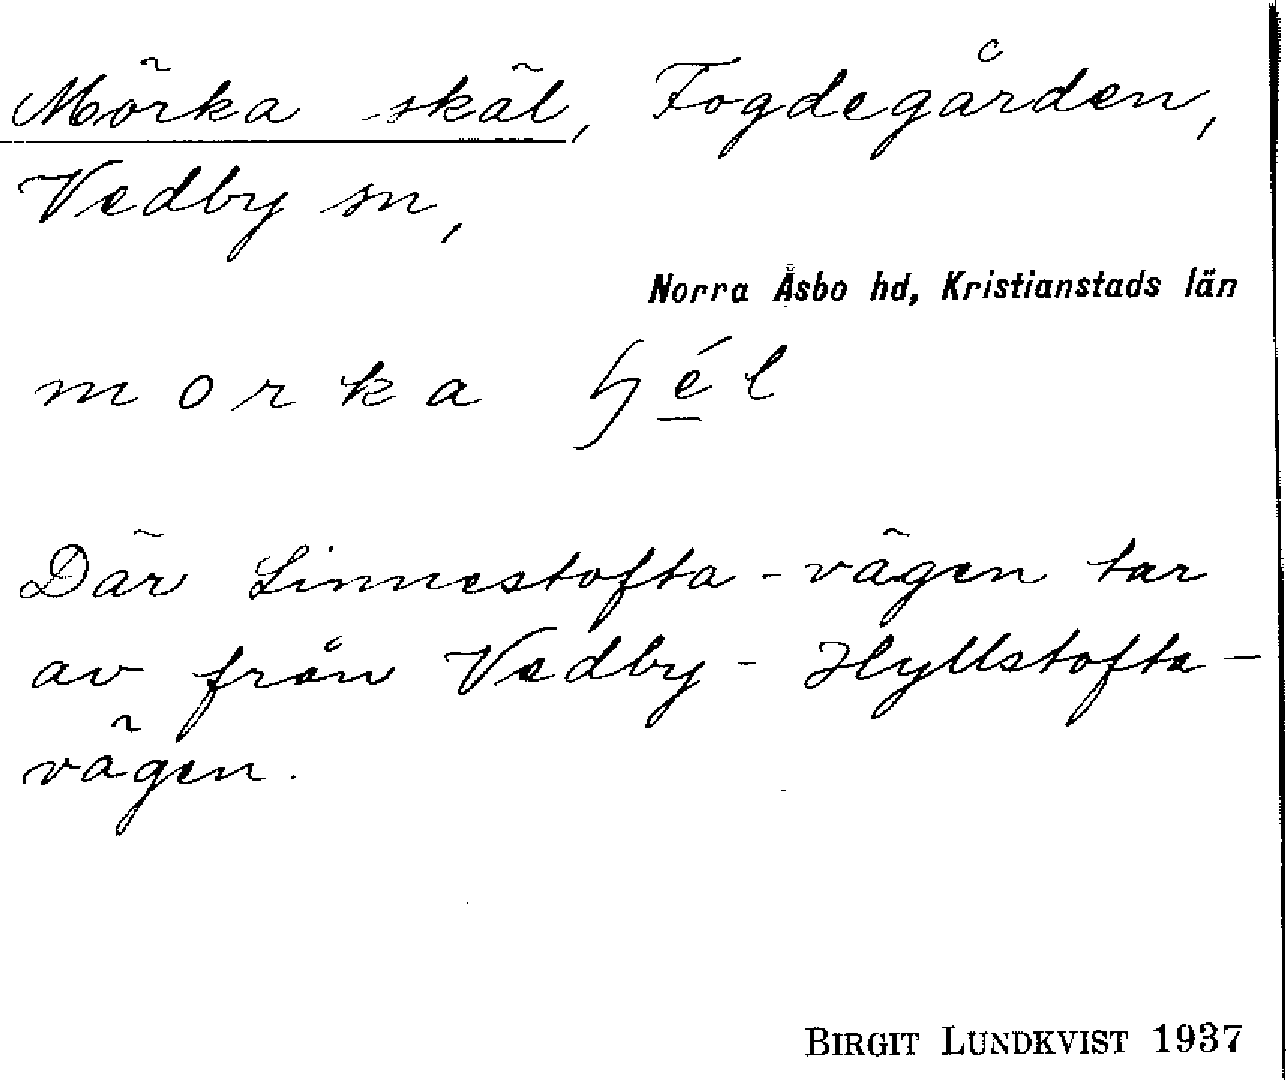 Mörka skäl, Fogdegården,
Vedby sn,
Norra Åsbo hd, Kristianstads län
morka ɧé̠l
Där Linnestofta-vägen tar
av från Vedby-Hyllstofta-
vägen.
BIRGIT LUNDKVIST 1937